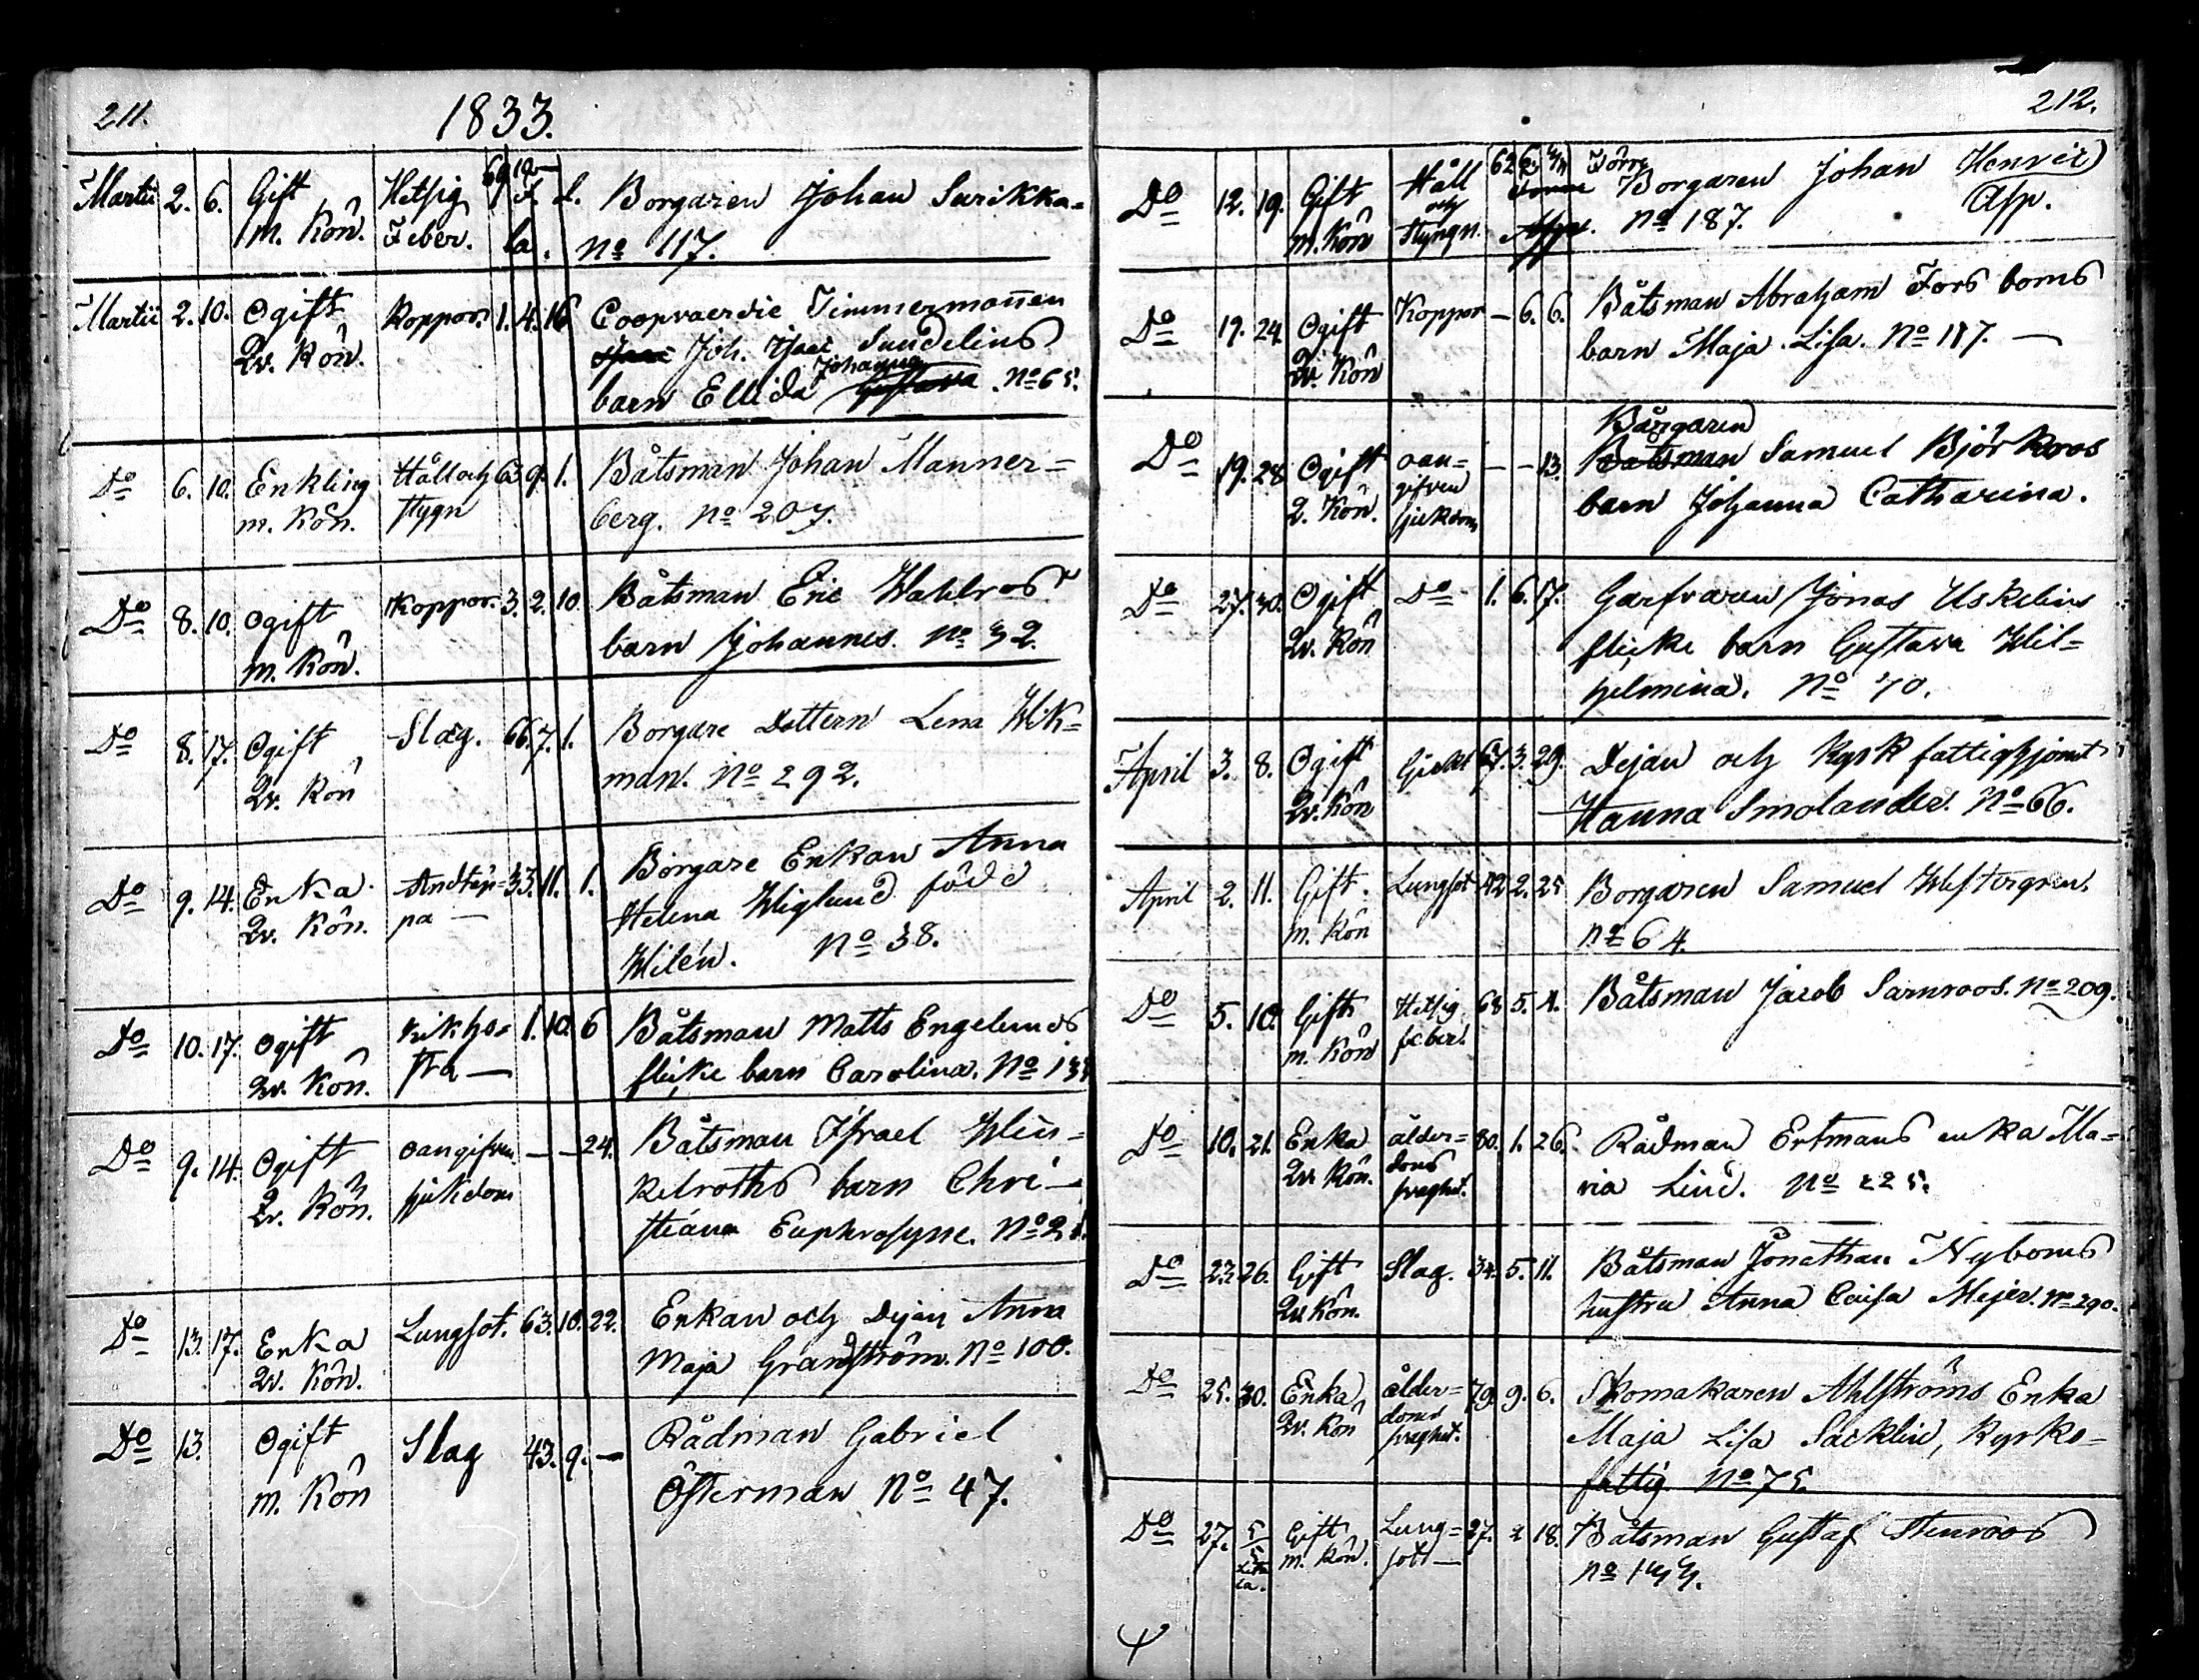 211.
1833.
Martii 2. 6. Gift Hetsig 69 Borgaren Johan Surikka=
m. Kön. Feber. la. No 117.
Martii 2. 10. Ogift Koppor. 1. 4. 16 Coopvaerdie Timmermannen
Qv. Kön. Joh. Isac Sundelius
Johanna
barn Ellida Gustava No 65.
Do 6. 10. Enkling Håll och 63 9. 1. Båtsman Johan Manner=
m. Kön. stygn berg. No 207.
Do 8. 10. Ogift Koppor. 3. 2. 10. Båtsman Eric Wahlros
m. Kön. barn Johannes. No 32.
Do 8. 17. Ogift Slag. 66. 7. 1. Borgare Dottern Lena Wik=
Qv. Kön man. No 292.
Do 9. 14. Enka Andtäp= 33. 11. 1. Borgare Enkan Anna
Qv. Kön. pa — Helena Wiglund född
Wilén. No 38.
Do 10. 17. Ogift Kikho= 1. 10. 6 Båtsman Matts Engelunds
Qv. Kön. sta — flicke barn Carolina. No
Do 9. 14. Ogift oangifven — — 24. Båtsman Israel Win=
Qv. Kön. sjukdom kelroths barn Chri=
stiana Euphrosyne.
Do 13. 17. Enka Lungsot. 63. 10. 22. Enkan och Dejan Anna
Qv. Kön. Maja Grandström. No 100.
Do 13. Ogift Slag 43. 9. — Rådman Gabriel
m. Kön Österman No 47.
212.
Do 12. 19. Gift Håll 62 6. Förre Borgaren Johan Henric
m. Kön och Styngn. No 187. Asp.
Do 19. 24. Ogift Koppor — 6. 6. Båtsman Abraham Forsboms
Qv. Kön barn Maja Lisa. No 117. —
Bårgaren
Do 19. 28 Ogift oan= — — 13. Båtsman Samuel Björkroos
Q. Kön. gifven sjukdom barn Johanna Catharina.
Do 27. 30. Ogift Do 1. 6. 17. Garfvaren Jonas Uskelius
Qv. Kön flicke barn Gustava Wil=
helmina. No 70.
April 3. 8. Ogift Gickt 67. 3. 29. Dejan och Kyrk fattighjonet
Qv. Kön Hanna Smolander. No 66.
April 2. 11. Gift. Lungsot 42 2. 25 Borgaren Samuel Westergren.
m. Kön No 64.
Do 5. 10. Gift Hetsig 68 5. 1. Båtsman Jacob Sarnroos. No 209.
m. Kön feber.
Do 10. 21. Enka ålder= 80. 1. 26. Rådman Ertmans enka Ma=
Qv. Kön. doms braghet. ria Lind. No 225.
Do 23. 26. Gift Slag. 34. 5. 11. Båtsman Jonathan Nyboms
Qv Kön. hustru Anna Caisa Mejer. No 290.
Do 25. 30. Enka ålder= 79. 9. 6. Skomakaren Ahlströms Enka
Qv. Kön doms braghet. Maja Lisa Säcklin, Kyrko=
fattig. No 75.
Do 27. 5/5 Gift Lung= 27. 2 18. Båtsman Gustaf Stenroos
m. Kön. sot — No